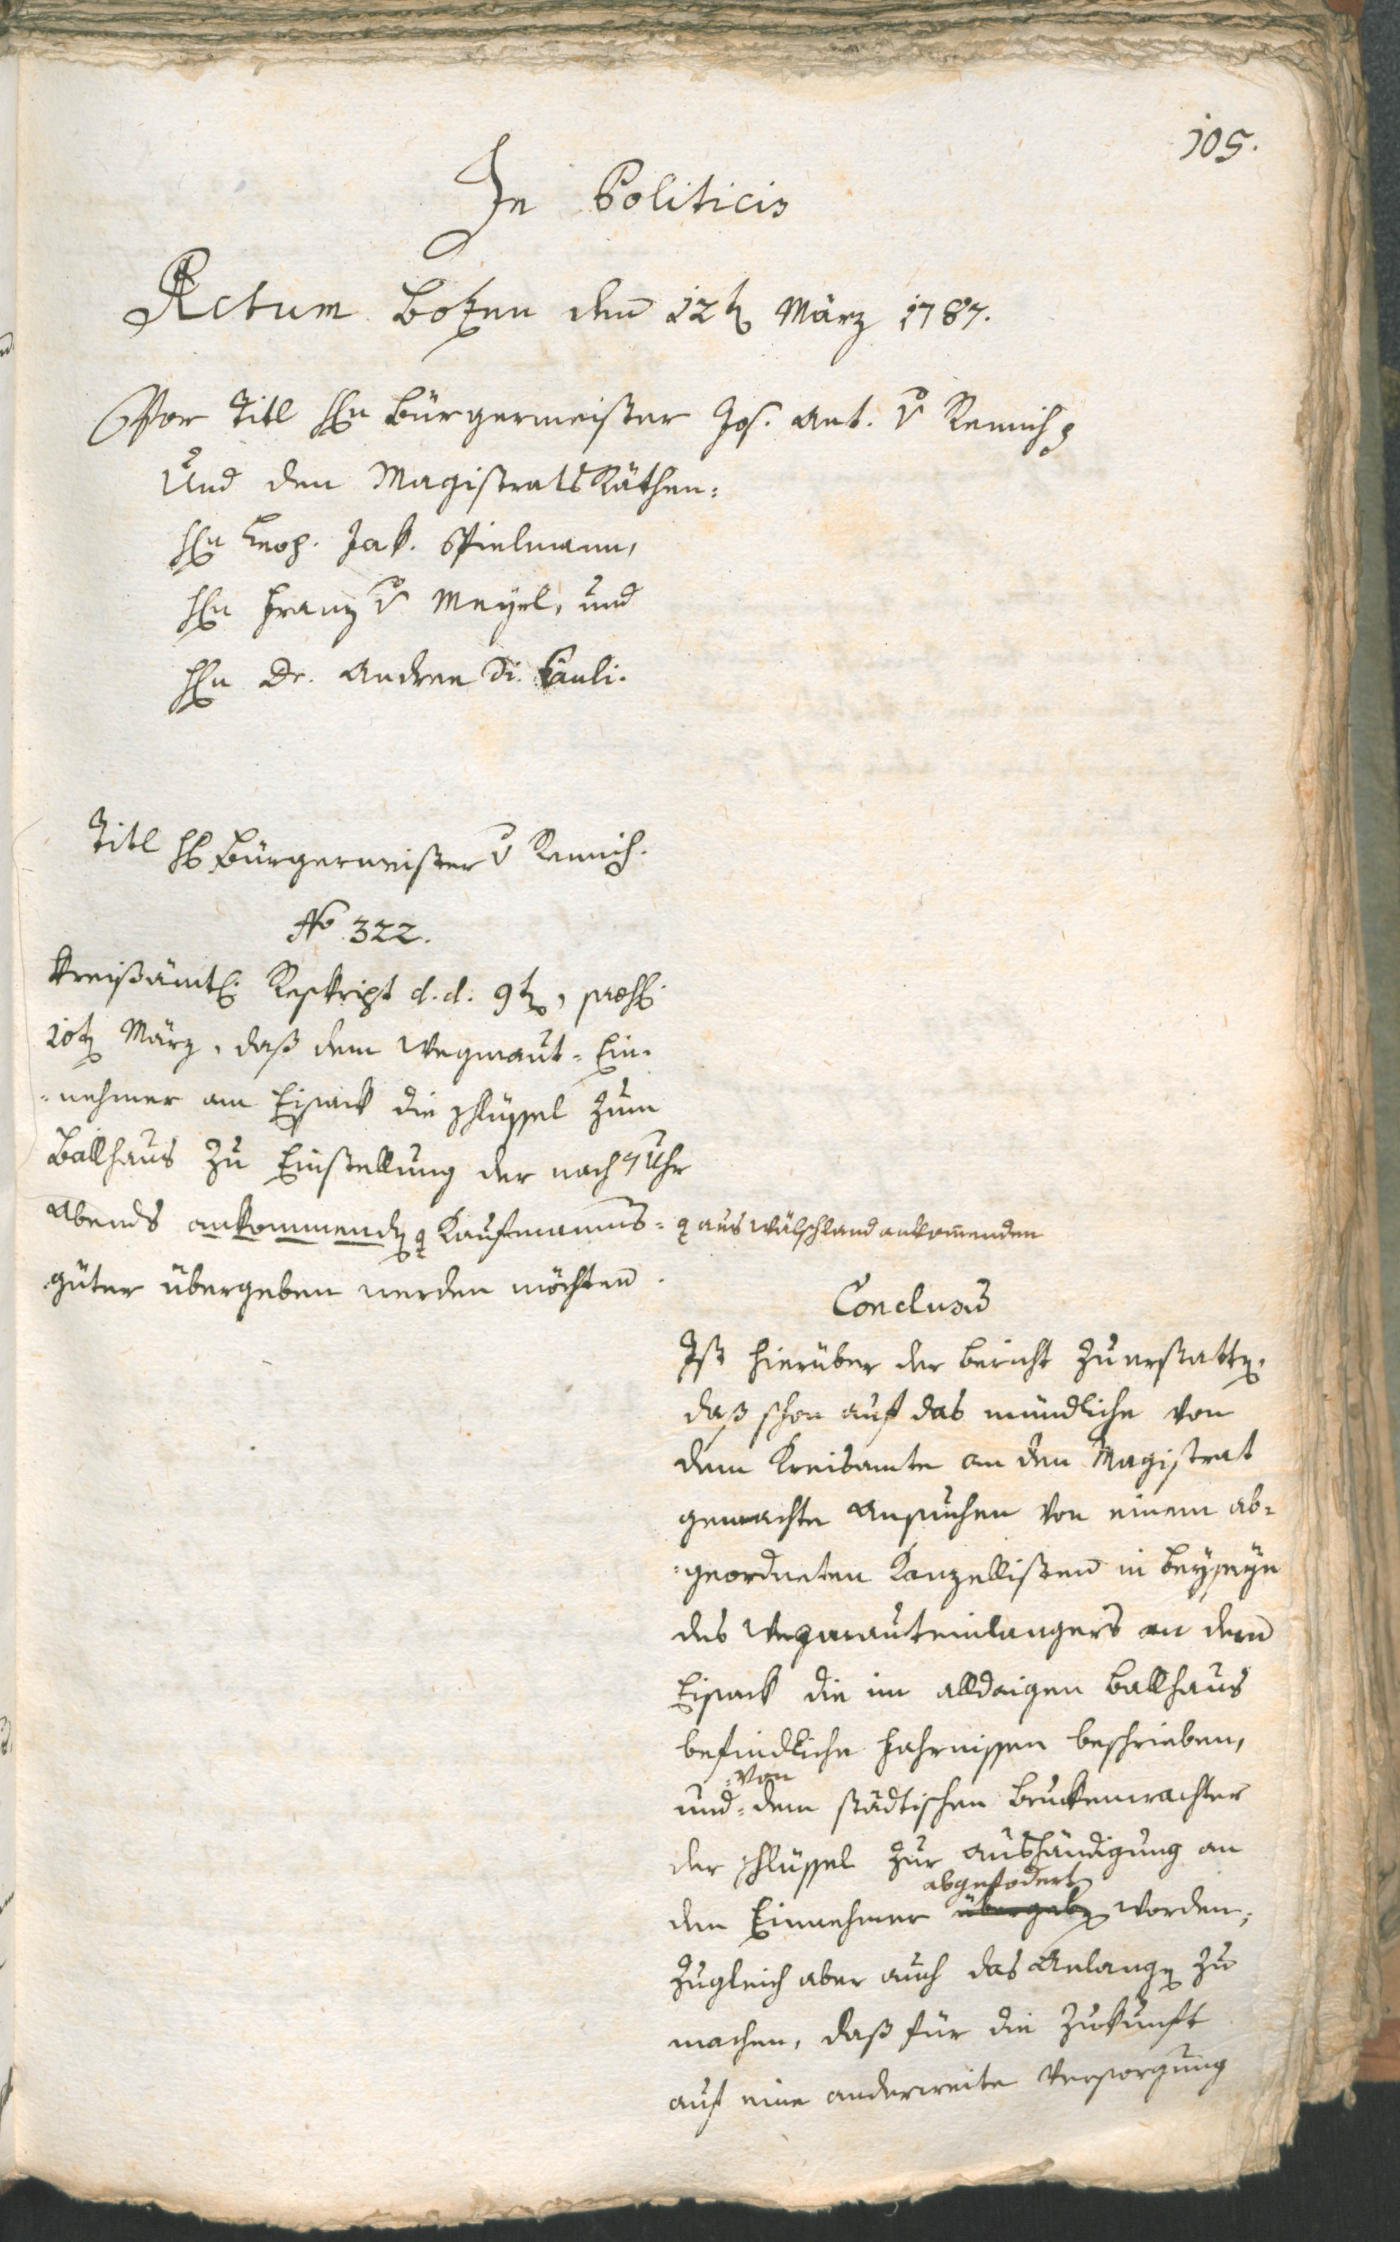 105.
In Politicis
Actum Botzen den 12t März 1787.
Vor Titl Hn Bürgermeister Jos. Ant. v Remich,
Und den Magistrats Räthen:
Hn Leop. Jak. Spielmann,
Hn Franz v Meyrl, und
Hn Dr. Andree Di. Pauli.
Titl H Bürgermeister v Remich.
No 322.
Kreißämtl. Reskript d. d. 9t,
10t März, daß dem Wegmaut-Ein-
-nehmer am Eisack die schlüssel zum
Ballhaus zu Einstellung der nach 7 Uhr
Abends ankommendn Kaufmanns- aus Wälschland ankommenden
güter übergeben werden möchten.
Conclusum
Ist hierüber der bericht zu erstattn,
daß schon auf das mündliche von
dem Kreisamte an den Magistrat
gemachte Ansuchen von einem ab-
-geordneten Kanzellisten in beyseyn
des Wegmauteinlangers an dem
Eisack die im alldaigen Ballhaus
befindliche Fahrnissen beschrieben,
von
und dem städtischen Bruckenwachter
der schlüssel zur aushändigung an
abgefodert
den Einnehmer übergebn worden;
zugleich aber auch das Anlangn zu
machen, daß für die Zukunft
auf eine anderweite Versorgung